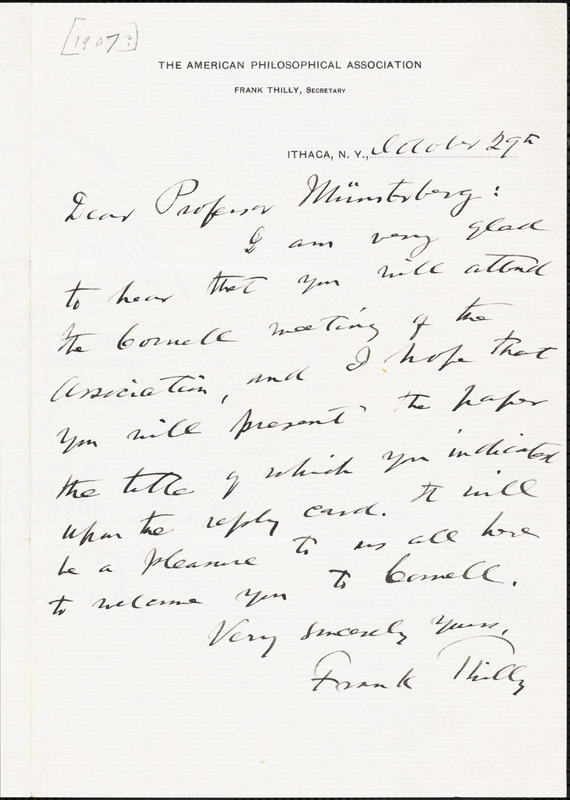 [1907?]
THE AMERICAN PHILOSOPHICAL ASSOCIATION
FRANK THILLY, SECRETARY
ITHACA, N. Y., October 29th
Dear Professor Münsterberg:
I am very glad
to hear that you will attend
the Cornell meeting of the
Association, and I hope that
you will present the paper
the title of which you indicated
upon the reply card. It will
be a pleasure to us all here
to welcome you to Cornell.
Very sincerely yours,
Frank Thilly